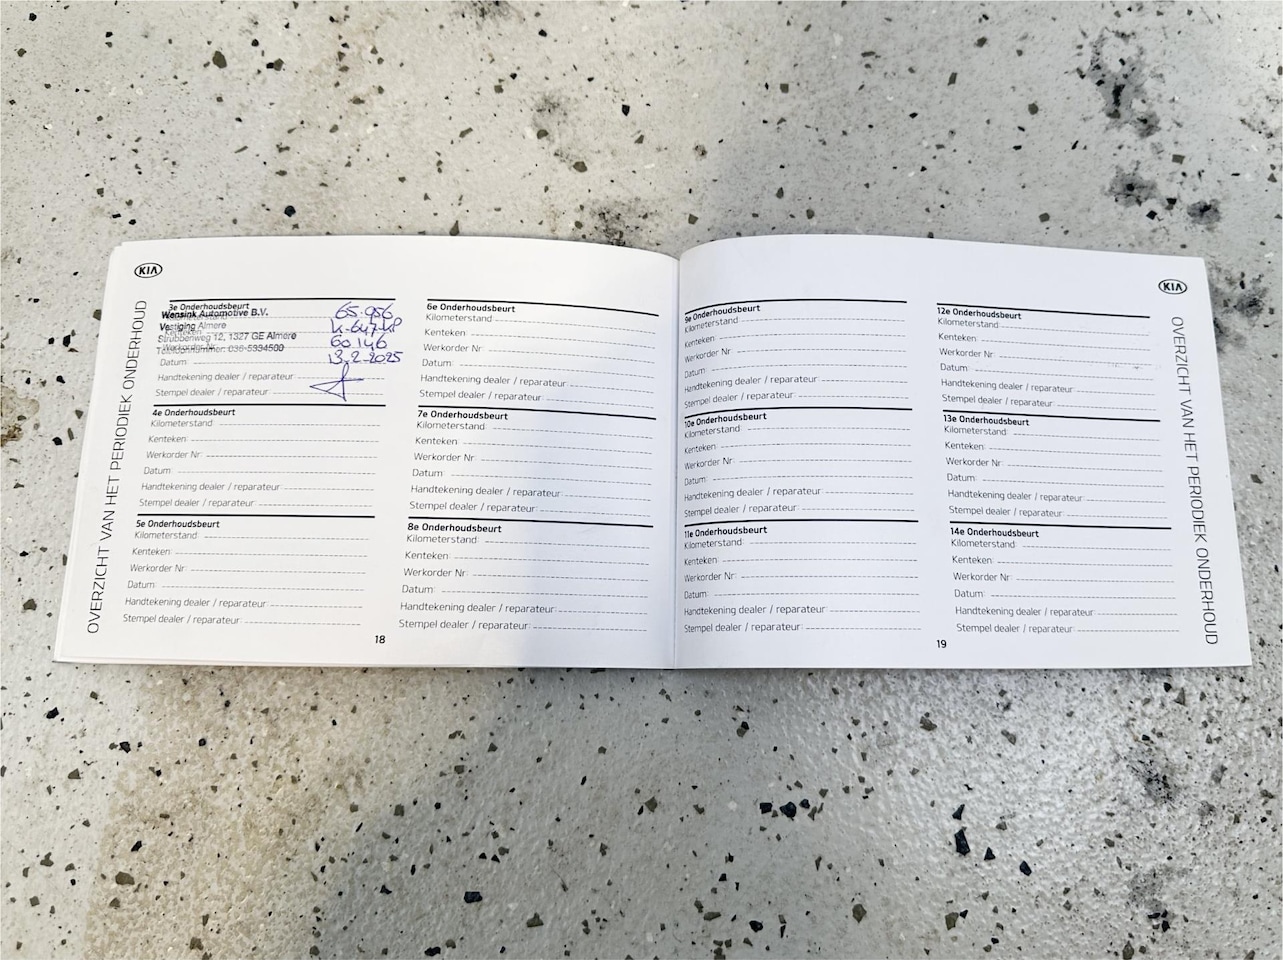 KIA
OVERZICHT VAN HET PERIODIEK ONDERHOUD
3e Onderhoudsbeurt
Wensink Automotive B.V.
65.956
Vestiging Almere
Strubbenweg 12, 1327 GE Almere
60146
Telefoonnummer: 036-5334500
Datum: 13-2-2025
Handtekening dealer / reparateur:
Stempel dealer / reparateur:
4e Onderhoudsbeurt
Kilometerstand:
Kenteken:
Werkorder Nr:
Datum:
Handtekening dealer / reparateur:
Stempel dealer / reparateur:
5e Onderhoudsbeurt
Kilometerstand:
Kenteken:
Werkorder Nr:
Datum:
Handtekening dealer / reparateur:
Stempel dealer / reparateur:
6e Onderhoudsbeurt
Kilometerstand:
Kenteken:
Werkorder Nr:
Datum:
Handtekening dealer / reparateur:
Stempel dealer / reparateur:
7e Onderhoudsbeurt
Kilometerstand:
Kenteken:
Werkorder Nr:
Datum:
Handtekening dealer / reparateur:
Stempel dealer / reparateur:
8e Onderhoudsbeurt
Kilometerstand:
Kenteken:
Werkorder Nr:
Datum:
Handtekening dealer / reparateur:
Stempel dealer / reparateur:
18
9e Onderhoudsbeurt
Kilometerstand:
Kenteken:
Werkorder Nr:
Datum:
Handtekening dealer / reparateur:
Stempel dealer / reparateur:
10e Onderhoudsbeurt
Kilometerstand:
Kenteken:
Werkorder Nr:
Datum:
Handtekening dealer / reparateur:
Stempel dealer / reparateur:
11e Onderhoudsbeurt
Kilometerstand:
Kenteken:
Werkorder Nr:
Datum:
Handtekening dealer / reparateur:
Stempel dealer / reparateur:
12e Onderhoudsbeurt
Kilometerstand:
Kenteken:
Werkorder Nr:
Datum:
Handtekening dealer / reparateur:
Stempel dealer / reparateur:
13e Onderhoudsbeurt
Kilometerstand:
Kenteken:
Werkorder Nr:
Datum:
Handtekening dealer / reparateur:
Stempel dealer / reparateur:
14e Onderhoudsbeurt
Kilometerstand:
Kenteken:
Werkorder Nr:
Datum:
Handtekening dealer / reparateur:
Stempel dealer / reparateur:
19
KIA
OVERZICHT VAN HET PERIODIEK ONDERHOUD